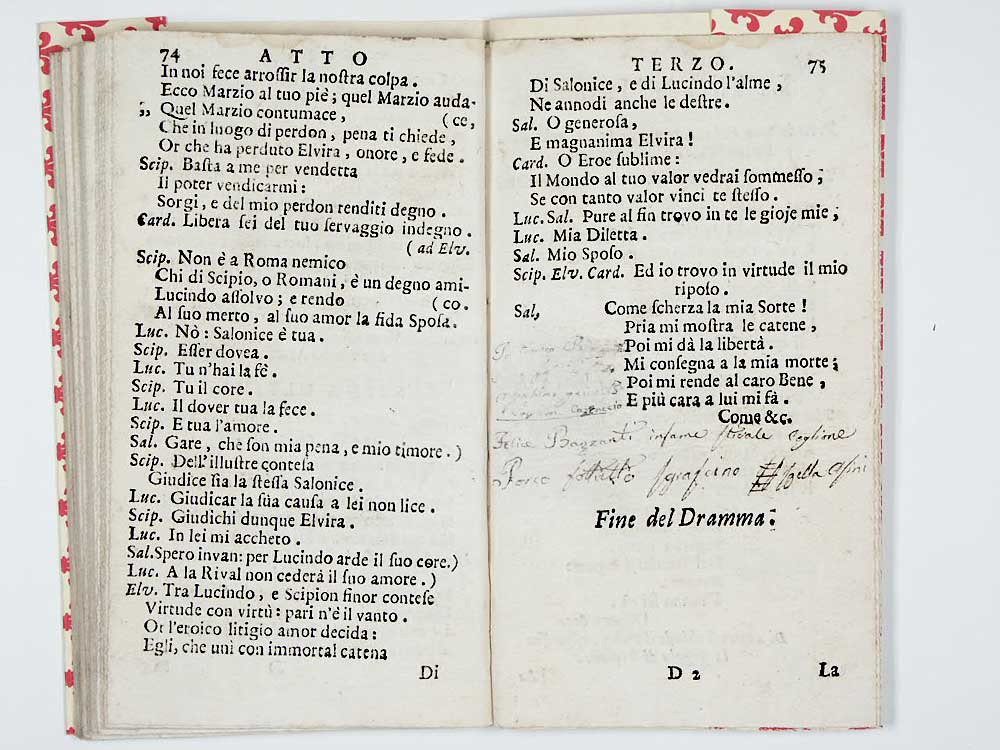 74 ATTO
In noi fece arroſſir la noſtra colpa.
Ecco Marzio al tuo piè; quel Marzio auda-
„ Quel Marzio contumace, (ce,
Che in luogo di perdon, pena ti chiede,
Or che ha perduto Elvira, onore, e fede.
Scip. Baſta a me per vendetta
Il poter vendicarmi:
Sorgi, e del mio perdon renditi degno.
Card. Libera ſei del tuo ſervaggio indegno.
(ad Elv.
Scip. Non è a Roma nemico
Chi di Scipio, o Romani, è un degno ami-
Lucindo aſſolvo; e rendo (co.
Al ſuo merto, al ſuo amor la fida Spoſa.
Luc. Nò: Salonice è tua.
Scip. Eſſer dovea.
Luc. Tu n'hai la fè.
Scip. Tu il core.
Luc. Il dover tua la fece.
Scip. E tua l'amore.
Sal. Gare, che ſon mia pena, e mio timore.)
Scip. Dell'illuſtre conteſa
Giudice ſia la ſteſſa Salonice.
Luc. Giudicar la ſua cauſa a lei non lice.
Scip. Giudichi dunque Elvira.
Luc. In lei mi accheto.
Sal. Spero invan: per Lucindo arde il ſuo core.)
Luc. A la Rival non cederà il ſuo amore.)
Elv. Tra Lucindo, e Scipion finor conteſe
Virtude con virtù: pari n'è il vanto.
Or l'eroico litigio amor decida:
Egli, che unì con immortal catena
Di
TERZO. 75
Di Salonice, e di Lucindo l'alme,
Ne annodi anche le deſtre.
Sal. O generoſa,
E magnanima Elvira!
Card. O Eroe ſublime:
Il Mondo al tuo valor vedrai ſommeſſo;
Se con tanto valor vinci te ſteſſo.
Luc. Sal. Pure al fin trovo in te le gioje mie;
Luc. Mia Diletta.
Sal. Mio Spoſo.
Scip. Elv. Card. Ed io trovo in virtude il mio
ripoſo.
Sal, Come ſcherza la mia Sorte!
Pria mi moſtra le catene,
Poi mi dà la libertà.
Mi conſegna a la mia morte;
Poi mi rende al caro Bene,
E più cara a lui mi fà.
Come &c.
Felice infame
Porco
Fine del Dramma.
D 2 La